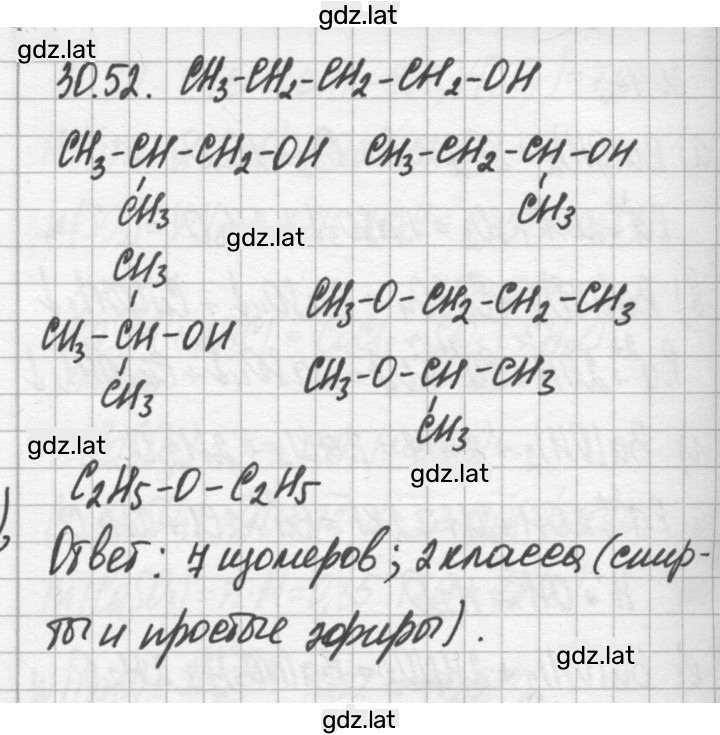 gdz.lat
gdz.lat
30.52. CH3-CH2-CH2-CH2-OH
CH3-CH-CH2-OH CH3-CH2-CH-OH
CH3 CH3
gdz.lat
CH3
CH3-O-CH2-CH2-CH3
CH3-CH-OH
CH3-O-CH-CH3
CH3
CH3
gdz.lat
gdz.lat
C2H5-O-C2H5
Ответ: 7 изомеров; 2 класса (спир-
ты и простые эфиры).
gdz.lat
gdz.lat